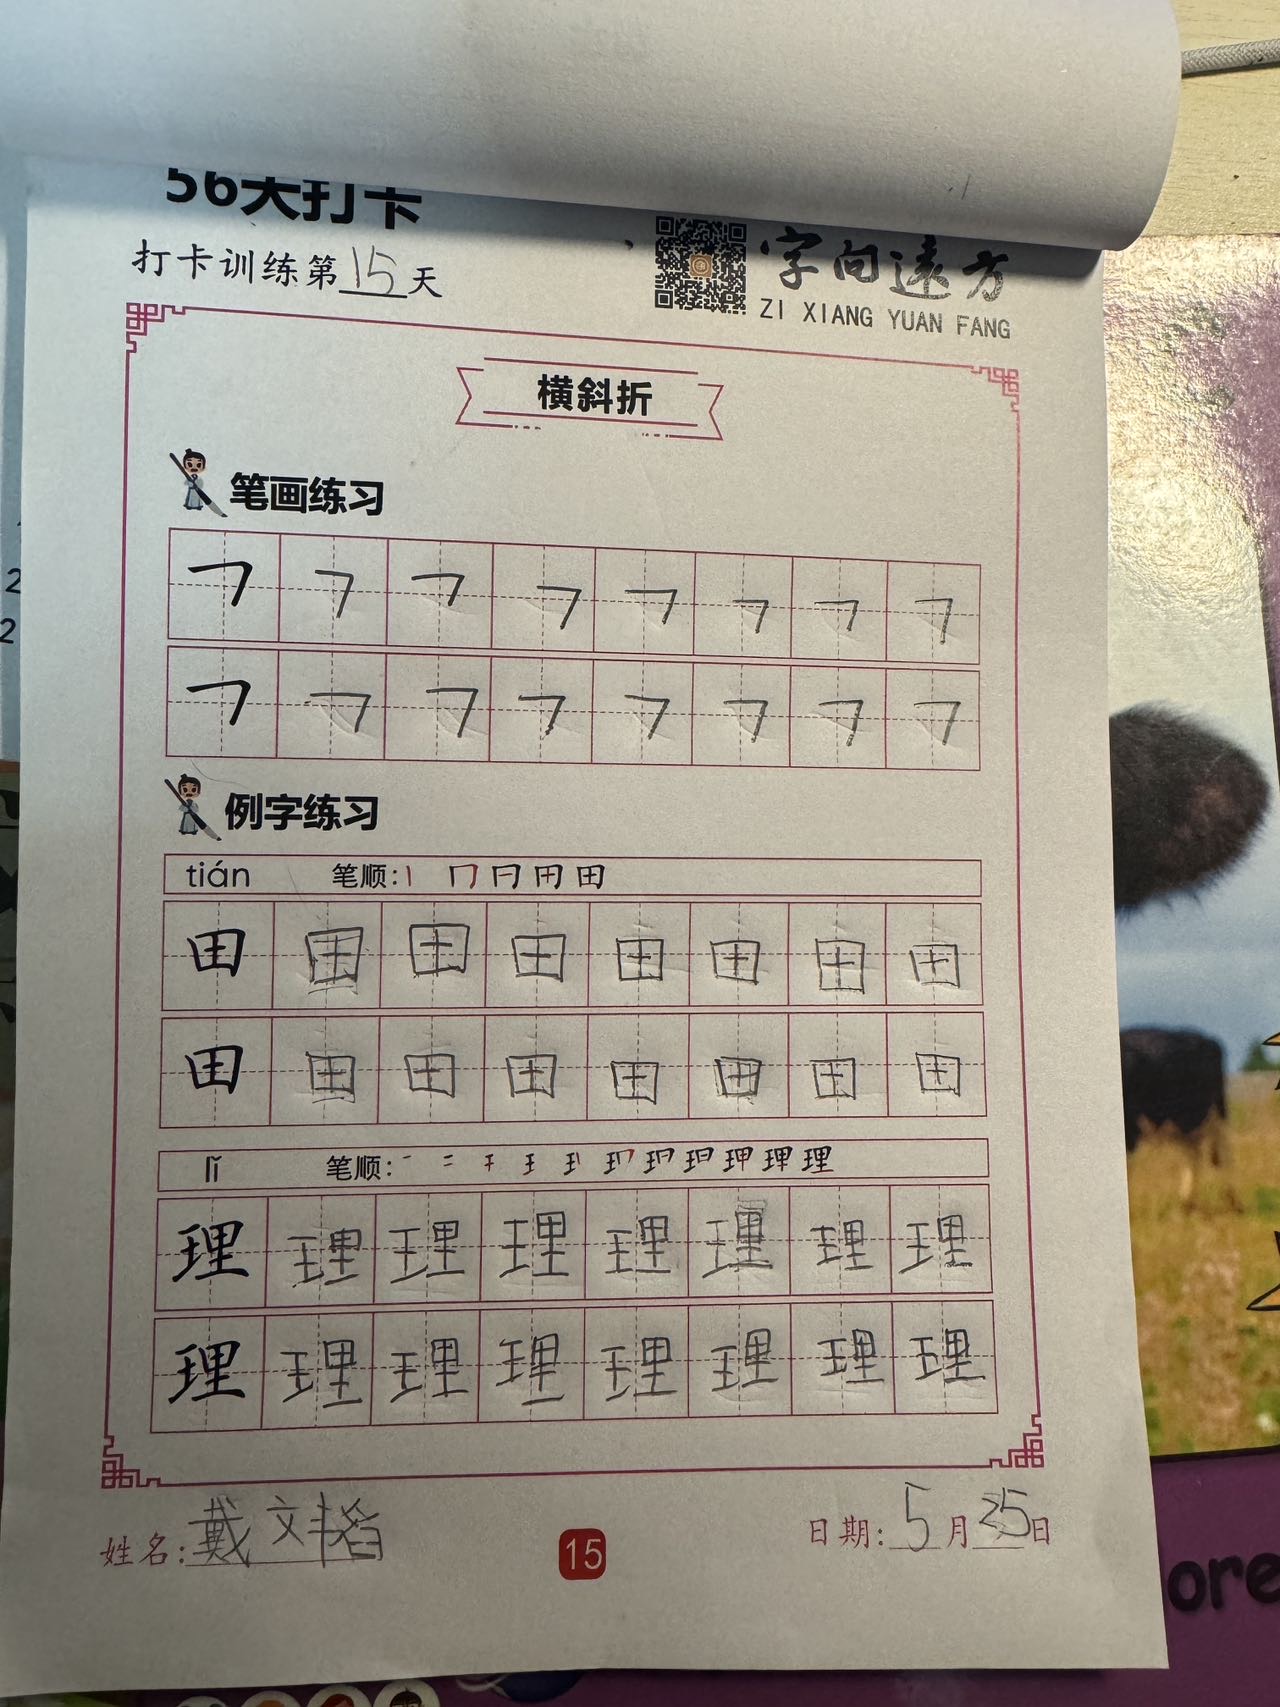 56天打卡
打卡训练第15天
字向远方
ZI XIANG YUAN FANG
横斜折
笔画练习
㇇ ㇇ ㇇ ㇇ ㇇ ㇇ ㇇ ㇇
㇇ ㇇ ㇇ ㇇ ㇇ ㇇ ㇇ ㇇
例字练习
tián 笔顺:
田 田 田 田 田 田 田 田
田 田 田 田 田 田 田 田
lǐ 笔顺:
理 理 理 理 理 理 理 理
理 理 理 理 理 理 理 理
姓名:戴文韬
15
日期:5月25日
ore